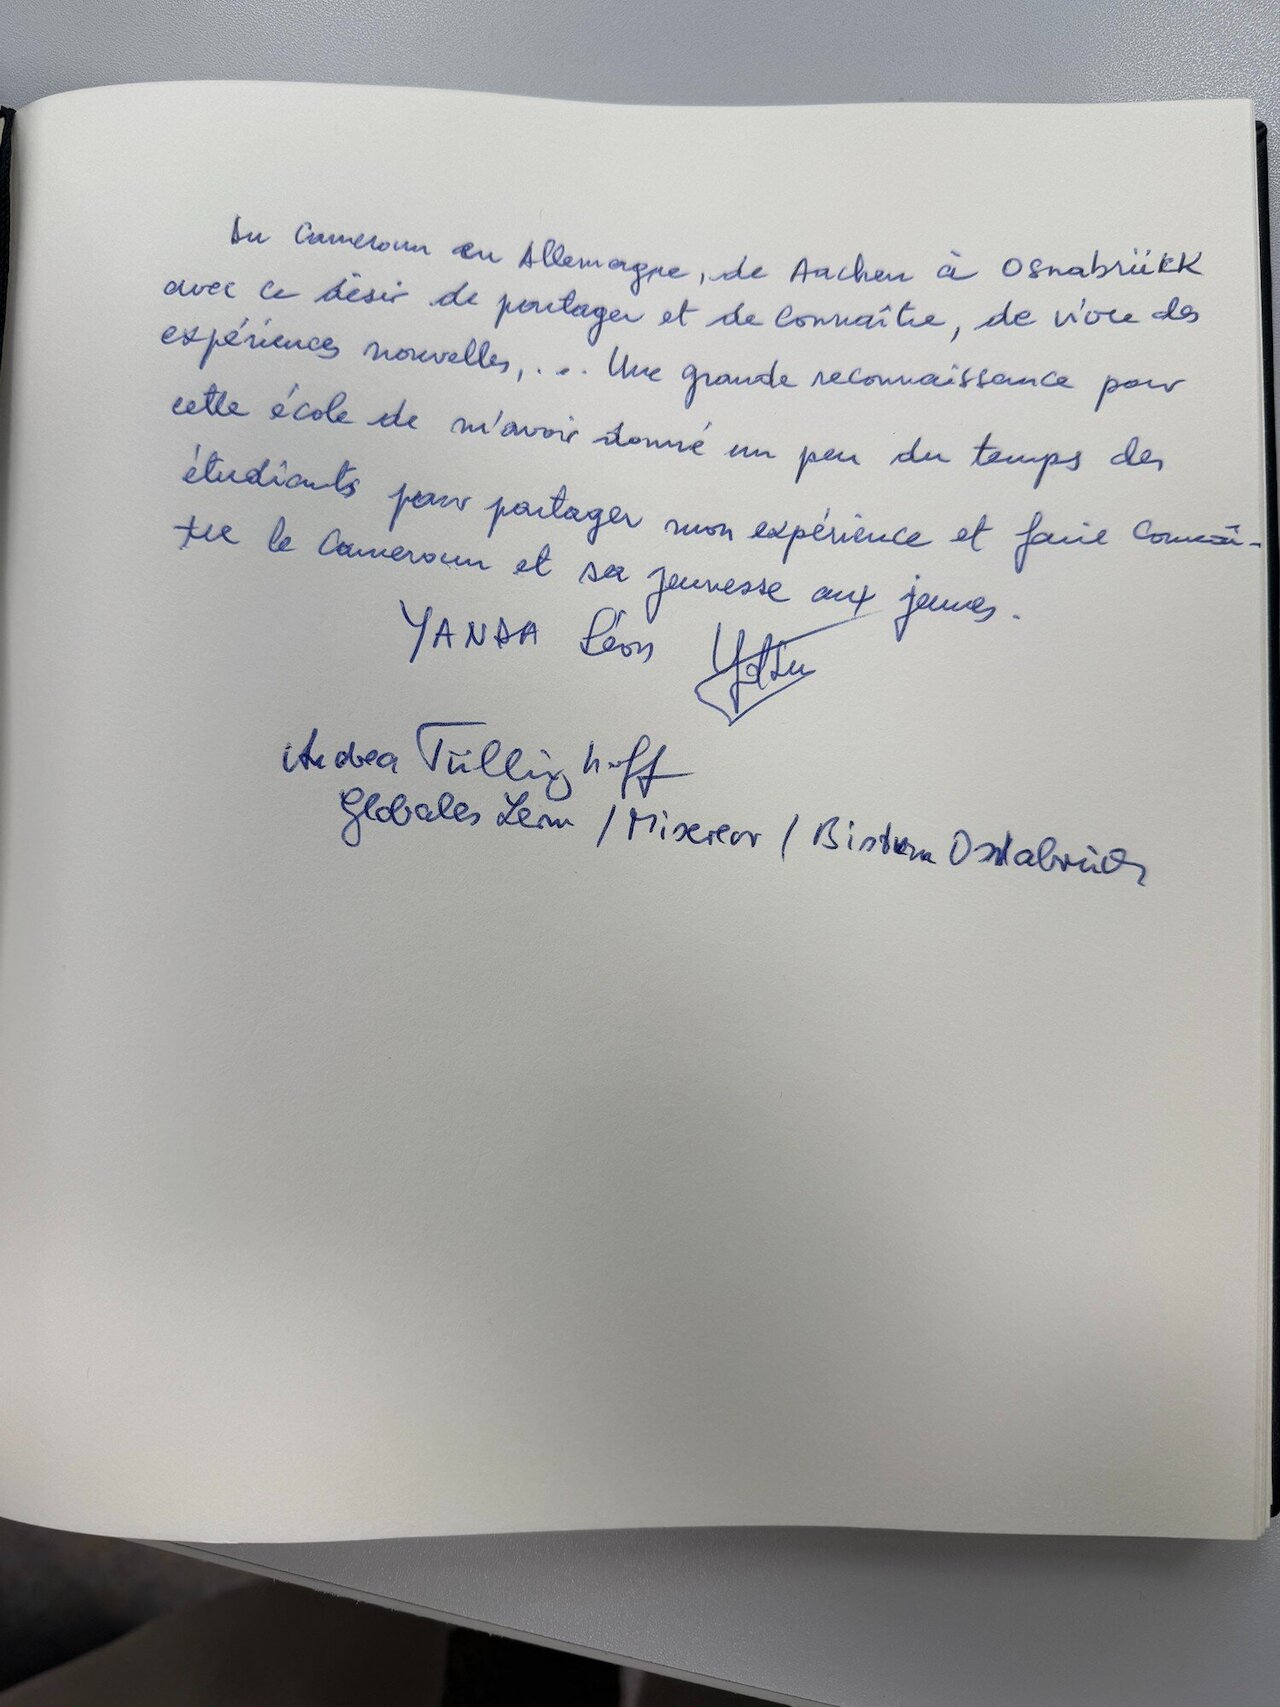 Du Cameroun en Allemagne, de Aachen à Osnabrükk
avec ce désir de partager et de connaître, de vivre des
expériences nouvelles,... Une grande reconnaissance pour
cette école de m'avoir donné un peu du temps des
étudiants pour partager mon expérience et faire connaî-
tre le Cameroun et sa jeunesse aux jeunes.
YANDA Léon
Andrea Tüllinghoff
Globales Lern / Misereor / Bistum Osnabrück